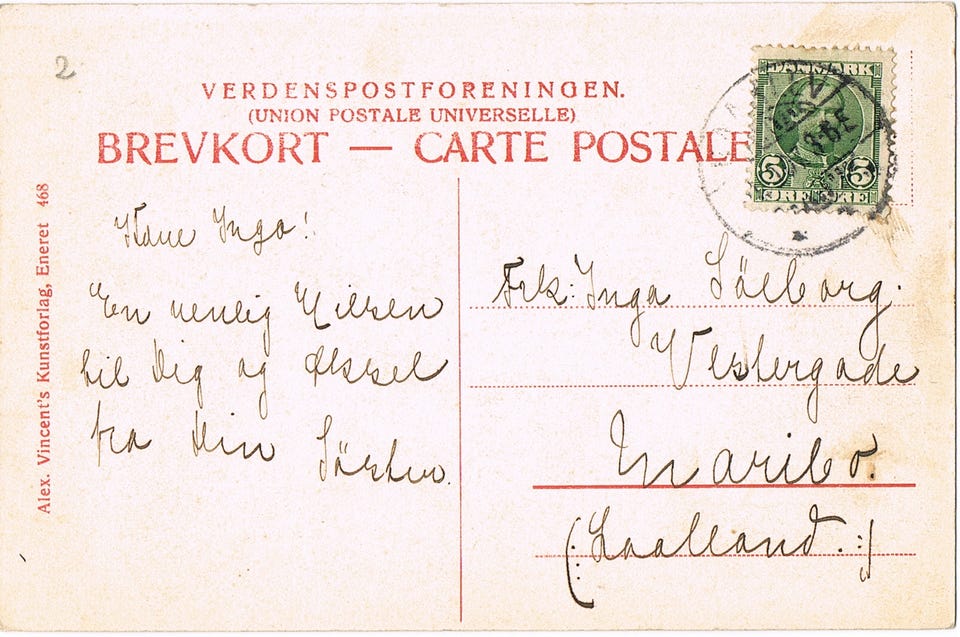 2
VERDENSPOSTFORENINGEN.
(UNION POSTALE UNIVERSELLE)
BREVKORT — CARTE POSTALE
DANMARK
5 5
ØRE ØRE
Alex. Vincent's Kunstforlag, Eneret 468
Kære Inga!
En venlig Hilsen
til Dig og
fra Din
Frk: Inga Sölborg.
Vestergade
Maribo.
(Laalland.)